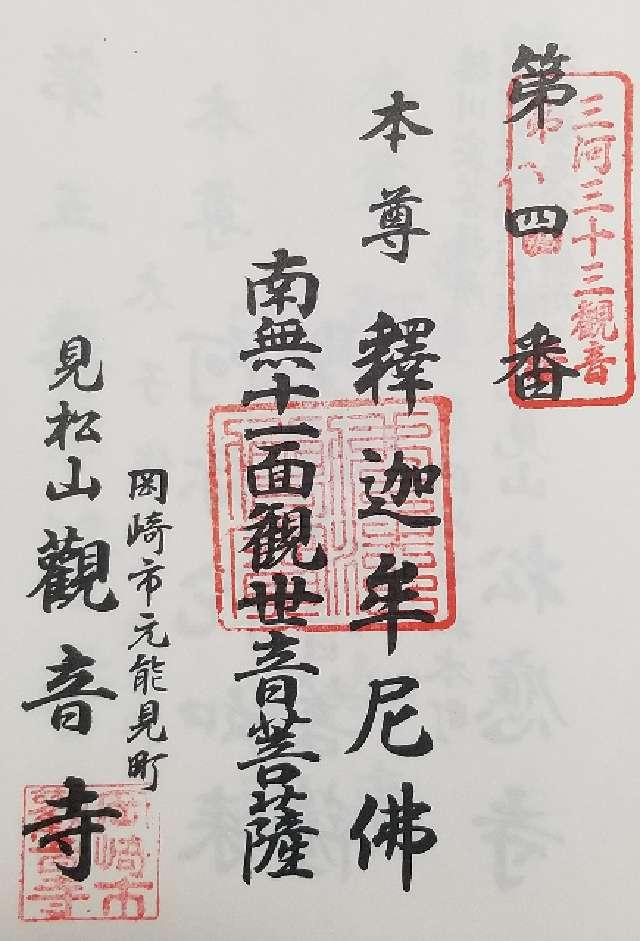 三河三十三觀音
第四番
本尊 釋迦牟尼佛
南無十一面観世音菩薩
岡崎市元能見町
見松山 觀音寺
岡崎市
觀音寺